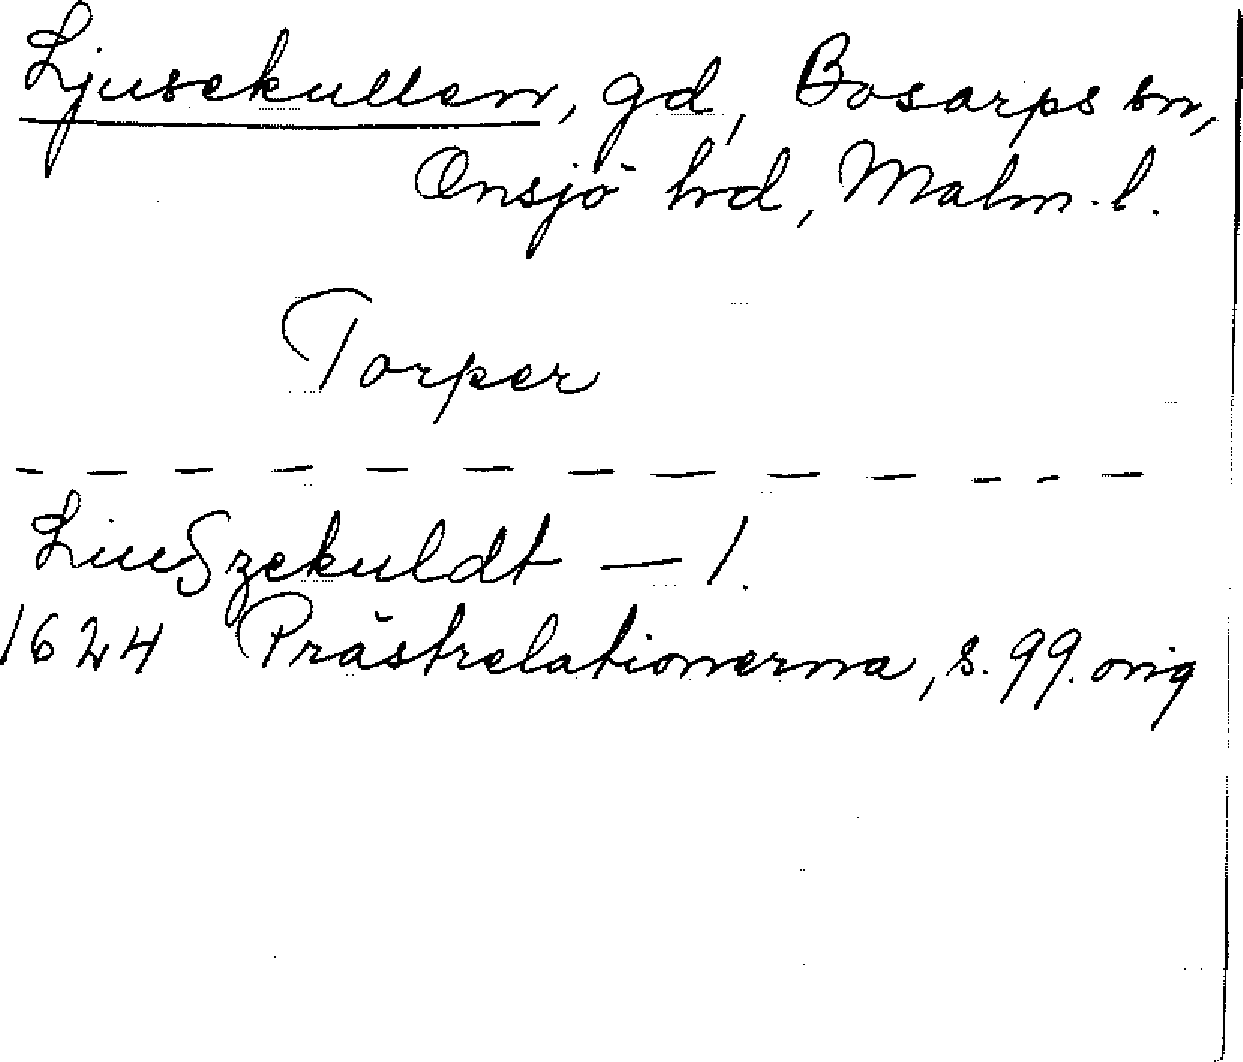 Ljusekullen, gd, Bosarps sn,
Onsjö hrd, Malm. l.
Torper
– – – – – – – – – – – – –
LiuSzekuldt — 1.
1624 Prästrelationerna, s. 99. orig